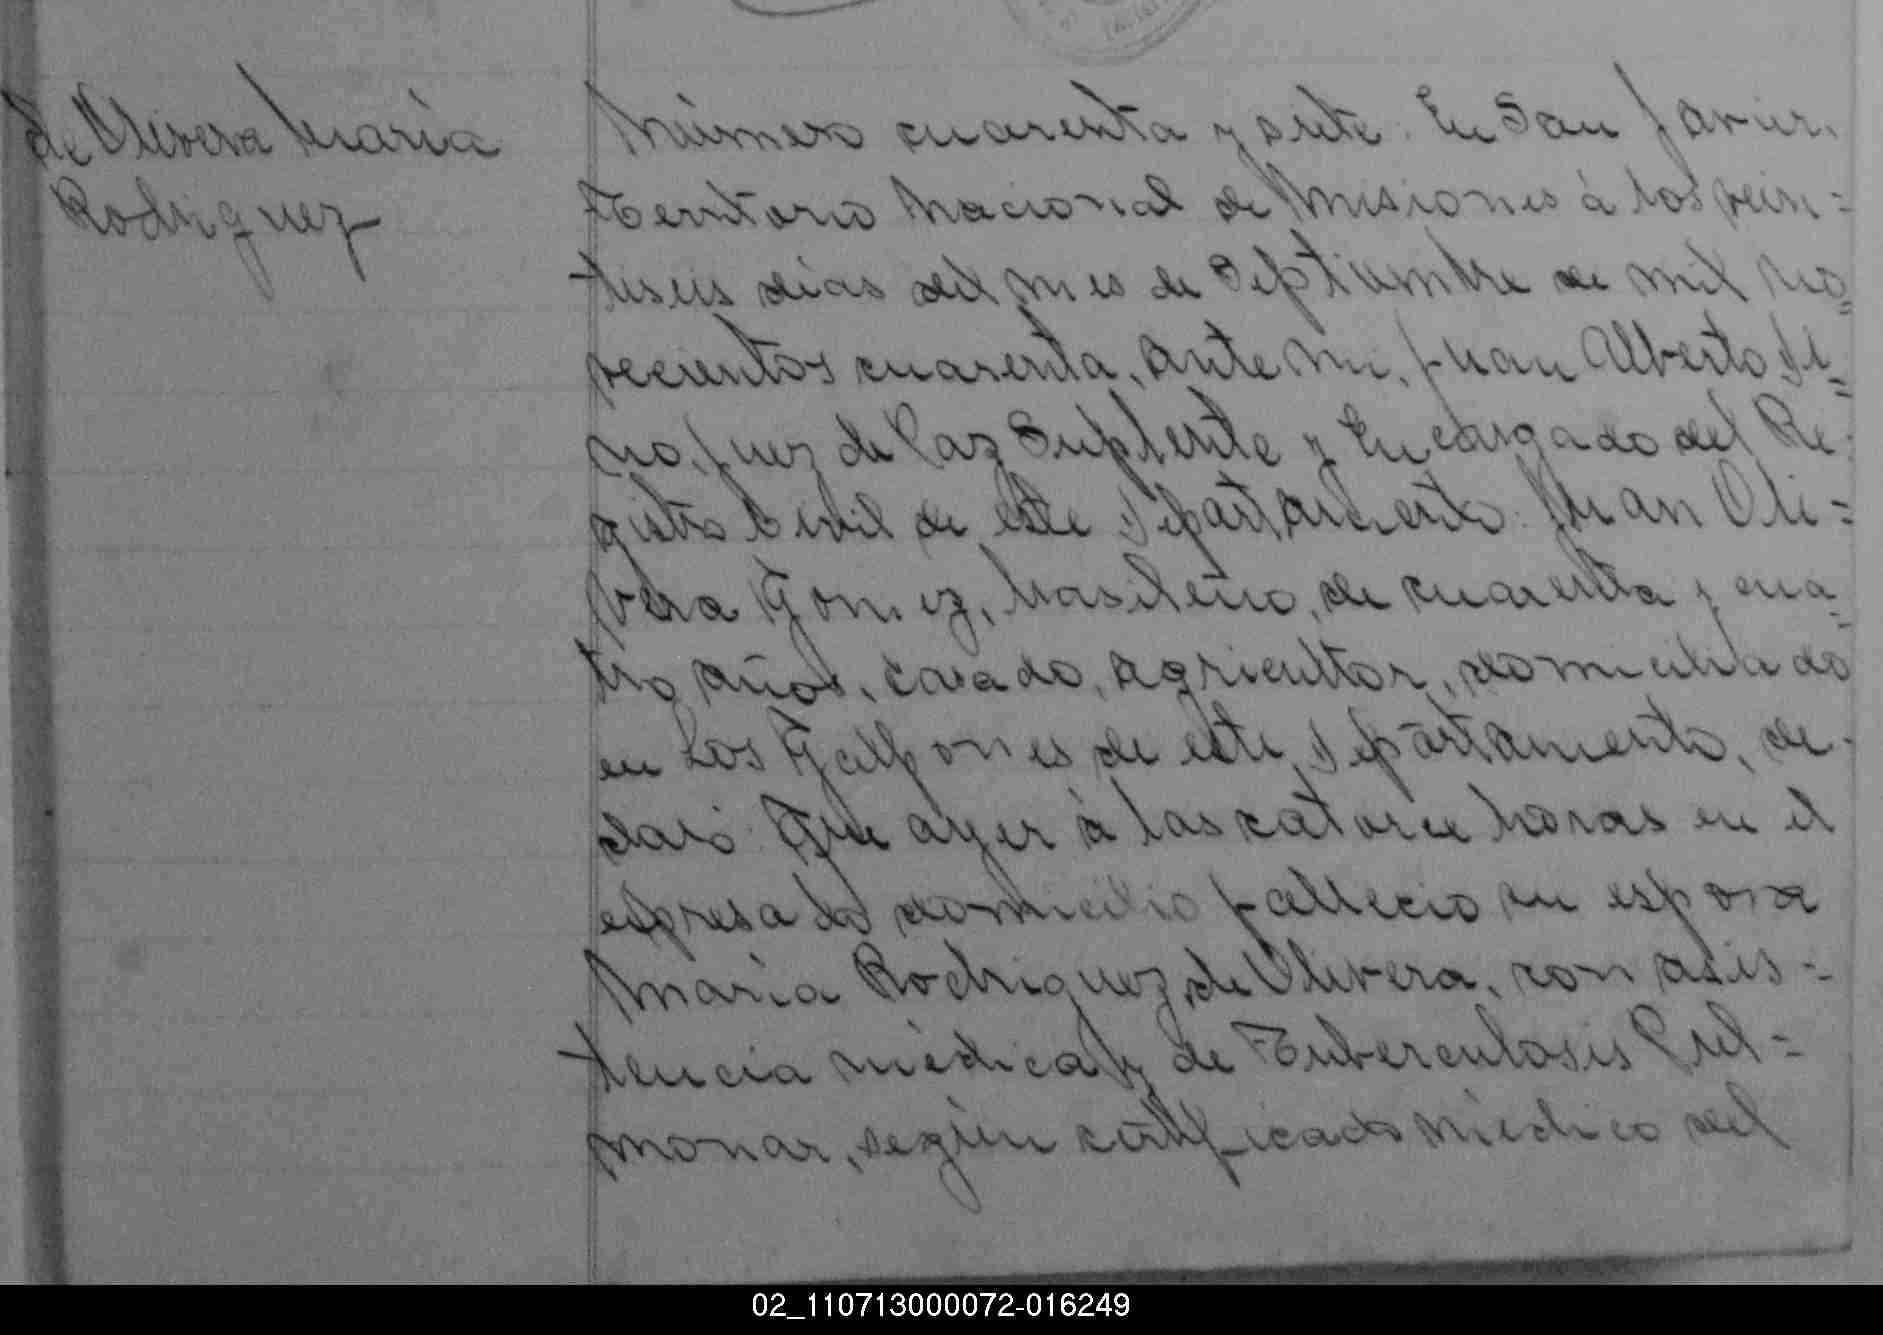 de Olivera Maria
Rodriguez
Número cuarenta y siete. En San Javier,
Territorio Nacional de Misiones á los vein=
tiseis días del mes de Septiembre de mil no=
vecientos cuarenta, ante mi, Juan Alberto
Juez de Paz Suplente y Encargado del Re=
gistro Civil de este Departamento: Juan Oli=
vera Gomez, brasileño, de cuarenta y cua=
tro años, casado, agricultor, domiciliado
en Los Galpones de este Departamento, de=
claró: Que ayer á las catorce horas en el
espresado domicilio falleció su esposa
Maria Rodriguez de Olivera, con asis=
tencia médica y de Tuberculosis Pul=
monar, según certificado médico del
02_110713000072-016249